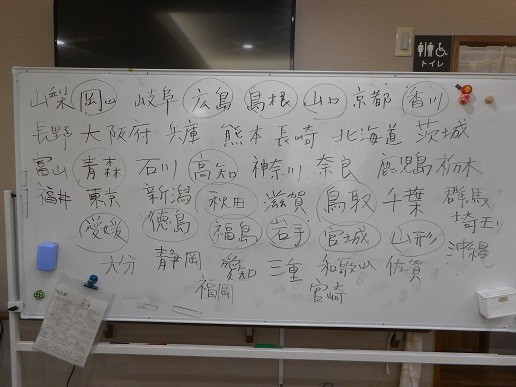 トイレ
山梨 岡山 岐阜 広島 島根 山口 京都 香川
長野 大阪府 兵庫 熊本 長崎 北海道 茨城
富山 青森 石川 高知 神奈川 奈良 鹿児島 栃木
福井 東京 新潟 秋田 滋賀 鳥取 千葉 群馬
愛媛 徳島 福島 岩手 宮城 山形 埼玉
大分 静岡 愛知 三重 和歌山 佐賀 沖縄
福岡 宮崎